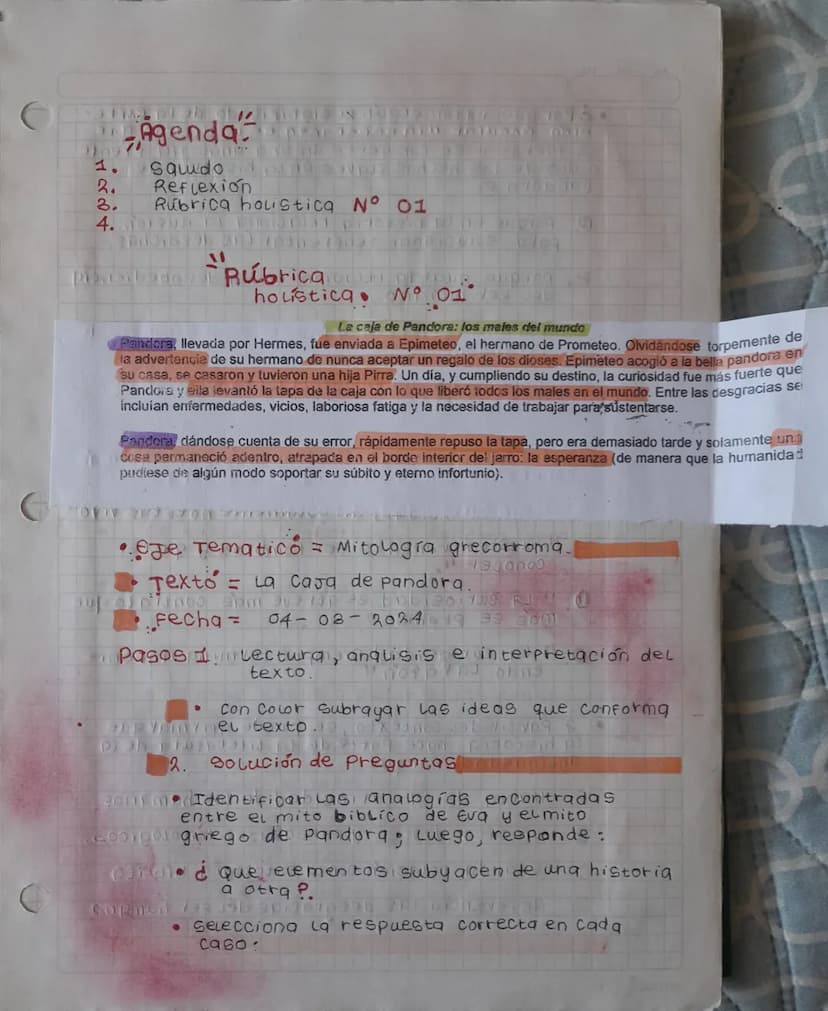 Agenda
1. Saludo
2. Reflexión
3. Rúbrica holística Nº 01
4.
Rúbrica
holística. Nº 01
La caja de Pandora: los males del mundo
Pandora, llevada por Hermes, fue enviada a Epimeteo, el hermano de Prometeo. Olvidándose torpemente de
la advertencia de su hermano de nunca aceptar un regalo de los dioses. Epimeteo acogió a la bella pandora en
su casa, se casaron y tuvieron una hija Pirra. Un día, y cumpliendo su destino, la curiosidad fue más fuerte que
Pandora y ella levantó la tapa de la caja con lo que liberó todos los males en el mundo. Entre las desgracias se
incluían enfermedades, vicios, laboriosa fatiga y la necesidad de trabajar para sustentarse.
Pandora, dándose cuenta de su error, rápidamente repuso la tapa, pero era demasiado tarde y solamente una
cosa permaneció adentro, atrapada en el borde interior del jarro: la esperanza (de manera que la humanidad
pudiese de algún modo soportar su súbito y eterno infortunio).
• Eje Tematicó = Mitología grecorroma.
• Textó = La caja de pandora.
• Fecha = 04-03-2024
Pasos 1. Lectura, analisis e interpretación del
texto.
• con color subrayar las ideas que conforma
el texto.
2. Solución de Preguntas
• Identificar las analogías encontradas
entre el mito bíblico de Eva y el mito
griego de Pandora; Luego, responde:
• ¿Que elementos subyacen de una historia
a otra?.
• Selecciona la respuesta correcta en cada
caso: